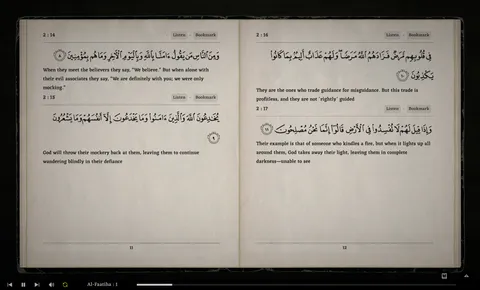 2 : 14 Listen Bookmark
وَمِنَ النَّاسِ مَن يَقُولُ ءَامَنَّا بِاللَّهِ وَبِالْيَوْمِ الْآخِرِ وَمَا هُم بِمُؤْمِنِينَ ٨
When they meet the believers they say, "We believe." But when alone with
their evil associates they say, "We are definitely with you; we were only
mocking."
2 : 15 Listen Bookmark
يُخَادِعُونَ اللَّهَ وَالَّذِينَ ءَامَنُوا وَمَا يَخْدَعُونَ إِلَّا أَنفُسَهُمْ وَمَا يَشْعُرُونَ
٩
God will throw their mockery back at them, leaving them to continue
wandering blindly in their defiance
11
2 : 16 Listen Bookmark
فِي قُلُوبِهِم مَّرَضٌ فَزَادَهُمُ اللَّهُ مَرَضًا وَلَهُمْ عَذَابٌ أَلِيمٌ بِمَا كَانُوا
يَكْذِبُونَ ١٠
They are the ones who trade guidance for misguidance. But this trade is
profitless, and they are not ˹rightly˺ guided
2 : 17 Listen Bookmark
وَإِذَا قِيلَ لَهُمْ لَا تُفْسِدُوا فِي الْأَرْضِ قَالُوا إِنَّمَا نَحْنُ مُصْلِحُونَ ١١
Their example is that of someone who kindles a fire, but when it lights up all
around them, God takes away their light, leaving them in complete
darkness—unable to see
12
Al-Faatiha : 1